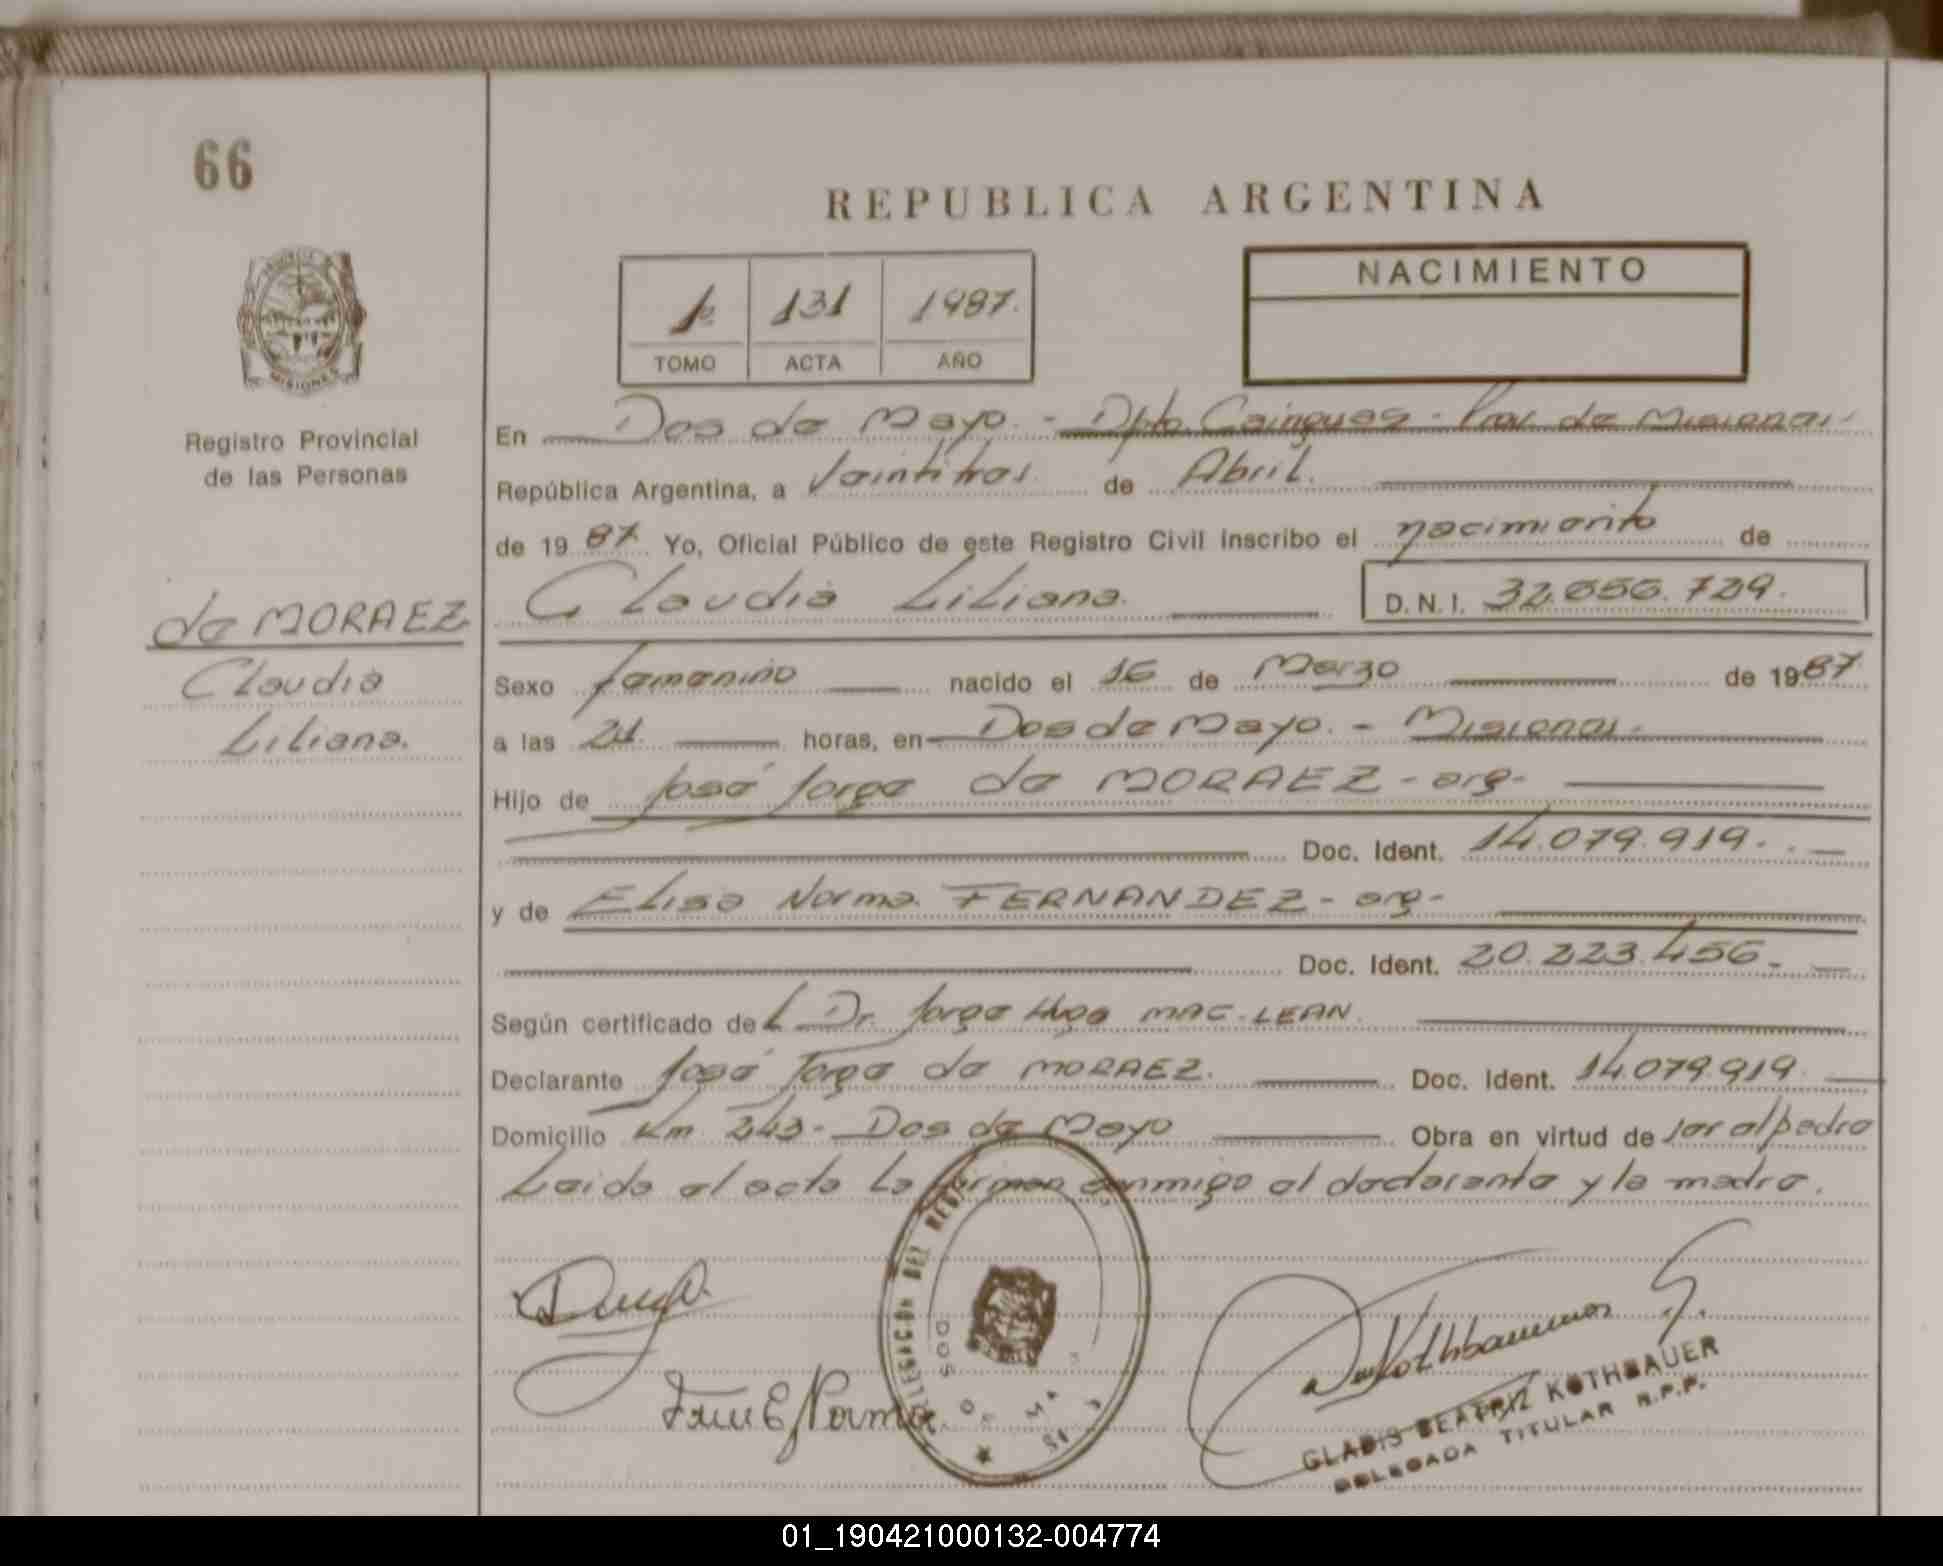 66
REPUBLICA ARGENTINA
1º 131 1987.
TOMO ACTA AÑO
NACIMIENTO
MISIONES
Registro Provincial
de las Personas
de MORAEZ
Claudia
Liliana.
En Dos de Mayo. - Dpto. Cainguas - Prov. de Misiones.-
República Argentina, a Veintitres de Abril.
de 19 87 Yo, Oficial Público de este Registro Civil inscribo el nacimiento de
Claudia Liliana. D.N.I. 32.656.729.
Sexo femenino nacido el 16 de Marzo de 19 87
a las 21. horas, en Dos de Mayo. - Misiones.-
Hijo de José Jorge de MORAEZ - arg-
Doc. Ident. 14.079.919.
y de Elisa Norma FERNANDEZ - arg-
Doc. Ident. 20.223.456.
Según certificado del Dr. Jorge Hugo MAC-LEAN.
Declarante José Jorge de MORAEZ. Doc. Ident. 14.079.919.
Domicilio Km. 243- Dos de Mayo Obra en virtud de ser el padre
Leida el acta la firman conmigo el declarante y la madre.
DELEGACION DEL
DOS DE MAYO
GLADIS BEATRIZ KOTHBAUER
DELEGADA TITULAR R.P.P.
01_190421000132-004774